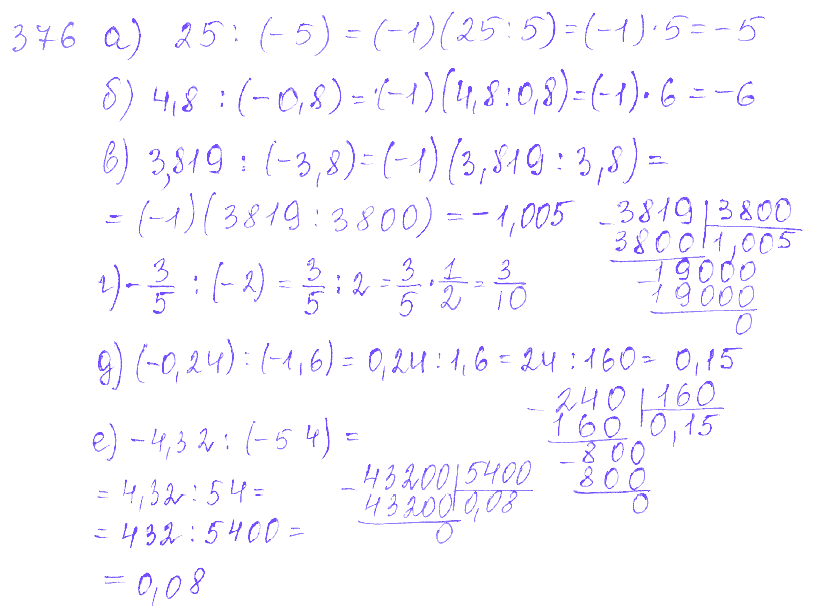 376 а) 25 : (-5) = (-1)(25:5) = (-1)·5 = -5
б) 4,8 : (-0,8) = (-1)(4,8:0,8) = (-1)·6 = -6
в) 3,819 : (-3,8) = (-1)(3,819 : 3,8) =
= (-1)(3819 : 3800) = -1,005
-3819 | 3800
3800 | 1,005
-19000
19000
0
г) -3/5 : (-2) = 3/5 : 2 = 3/5 · 1/2 = 3/10
д) (-0,24) : (-1,6) = 0,24 : 1,6 = 24 : 160 = 0,15
-240 | 160
160 | 0,15
-800
800
0
е) -4,32 : (-54) =
= 4,32 : 54 =
= 432 : 5400 =
= 0,08
-43200 | 5400
43200 | 0,08
0